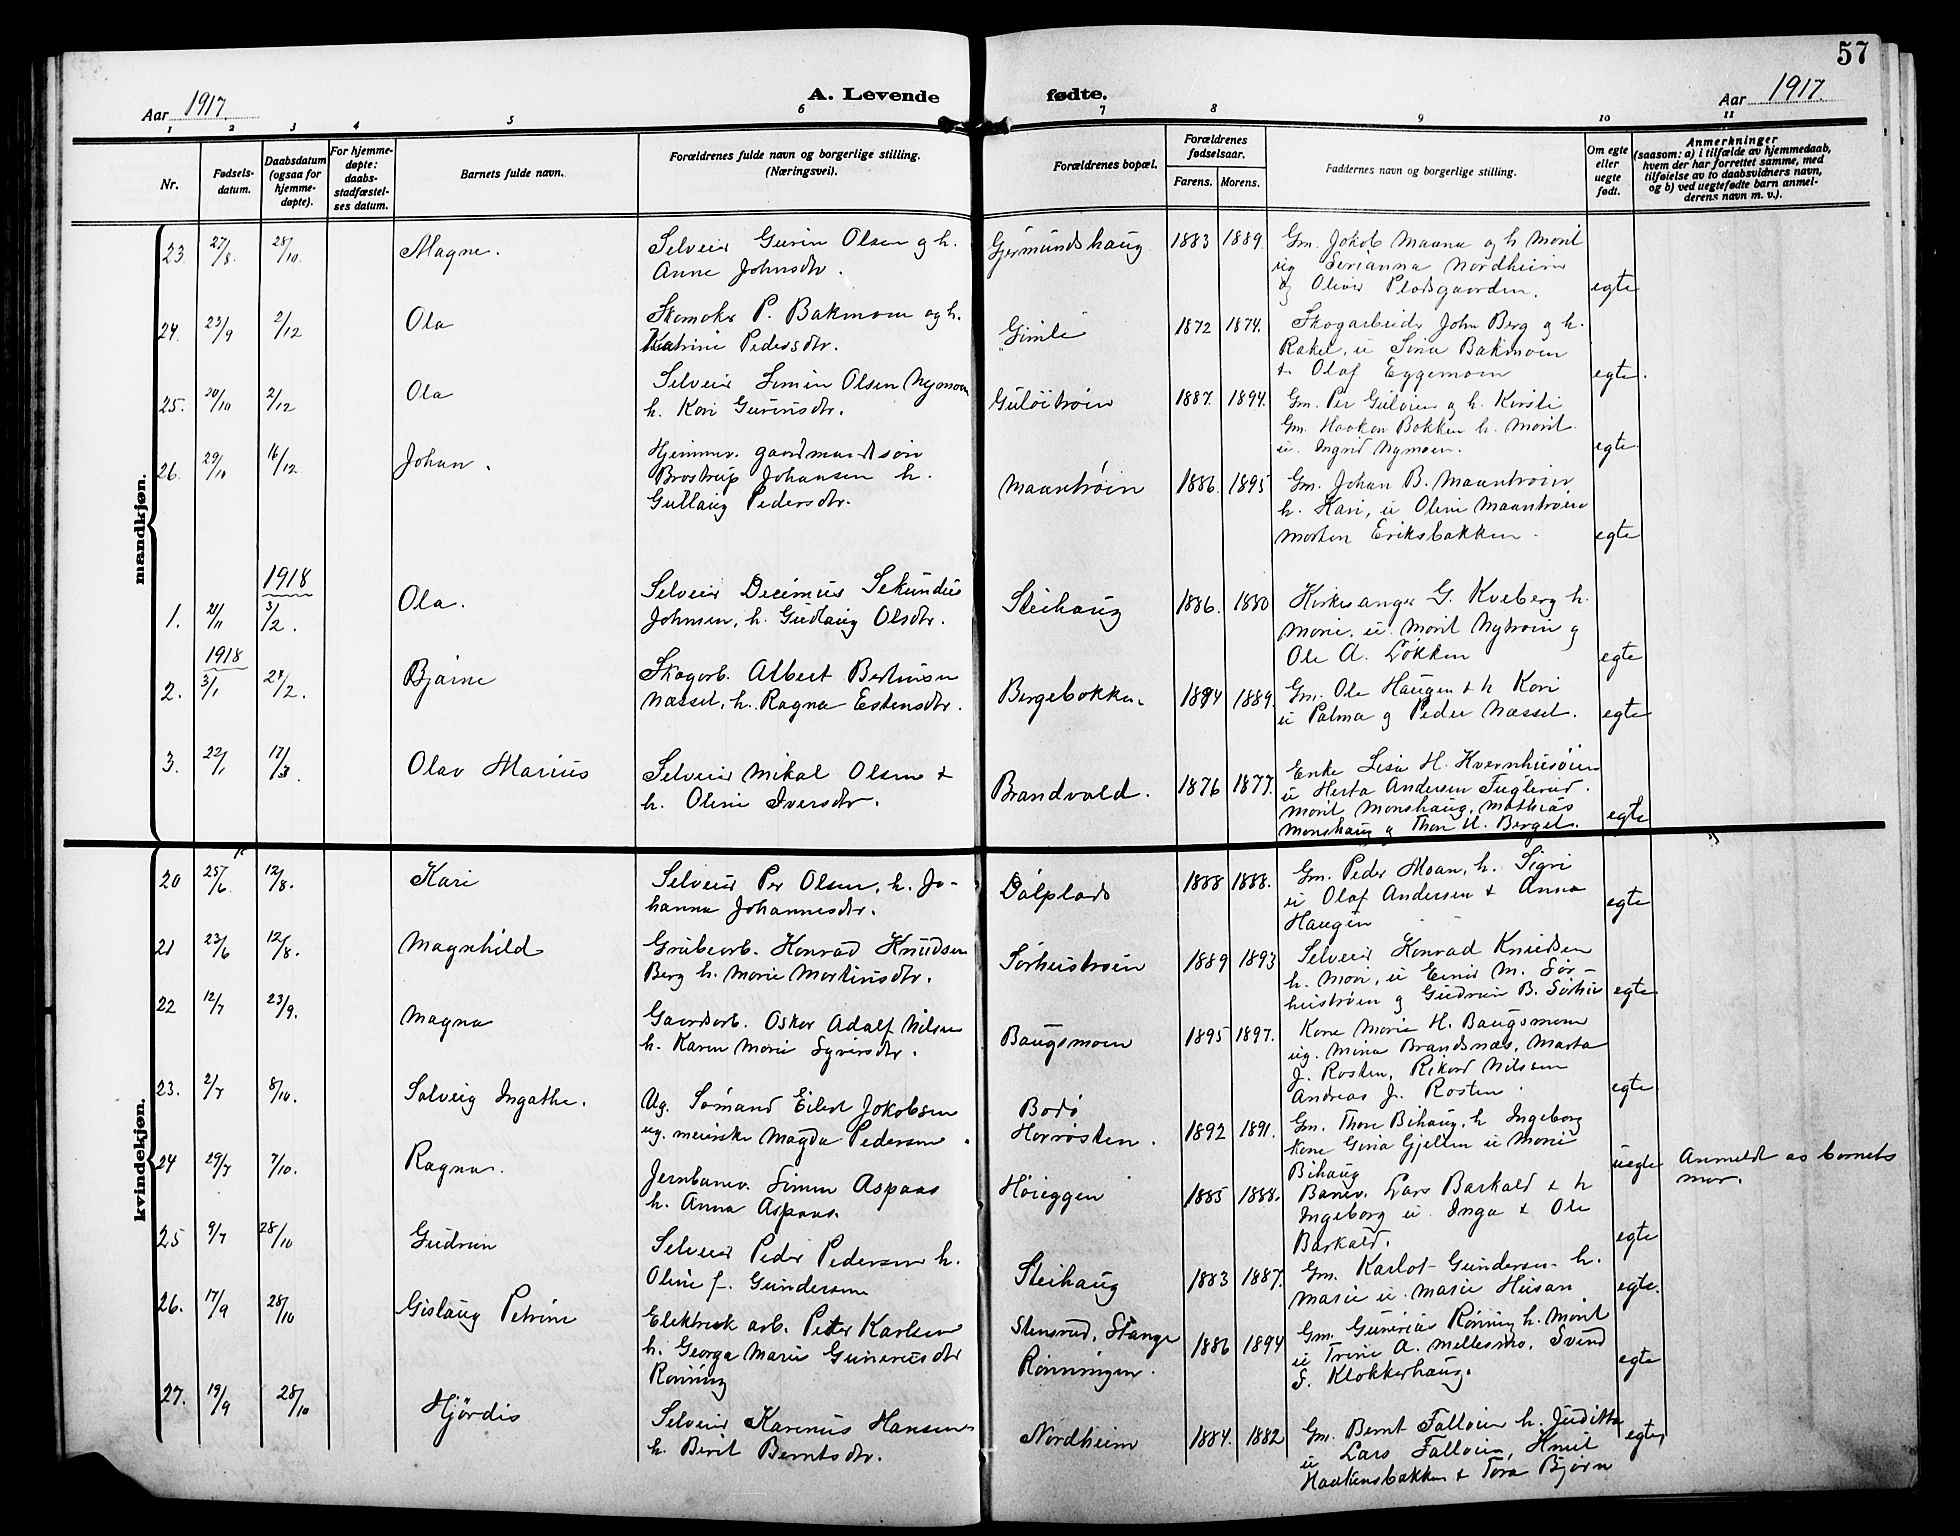 57
Aar 1917.
A. Levende fødte.
Aar 1917.
1 2 3 4 5 6 7 8 9 10 11
Nr.
Fødsels-
datum.
Daabsdatum
(ogsaa for
hjemme-
døpte).
For hjemme-
døpte:
daabs-
stadfæstel-
ses datum.
Barnets fulde navn.
Forældrenes fulde navn og borgerlige stilling.
(Næringsvei).
Forældrenes bopæl.
Forældrenes
fødselsaar.
Farens. Morens.
Faddernes navn og borgerlige stilling.
Om egte
eller
uegte
født.
Anmerkninger
(saasom: a) i tilfælde av hjemmedaab,
hvem der har forrettet samme, med
tilføielse av to daabsvidners navn,
og b) ved uegtefødte barn anmel-
derens navn m. v.).
mandkjøn.
23. 27/8 28/10. Magne.
Selveier Gunin Olsen og h.
Anne Johnsdtr.
Gjermundshaug 1883 1889.
Gm. Jakob Maana og h Marit
ug Serianna Nordheim
og Oliver Pladsgaarden. egte
24. 23/9 2/12 Ola
Skomaker P. Bakmoen og h.
Katrine Pedersdtr.
"Gimle" 1872 1874.
Skogarbeider John Berg og h.
Rakel, u Sina Bakmoen
+ Olaf Eggemoen egte.
25. 20/10 2/12 Ola
Selveier Simen Olsen Nymoen
h. Kari Gunersdtr.
Guløitrøen 1887. 1894.
Gm. Per Guløien og h. Kirsti
Gm. Haakon Bakken h. Marit
u. Ingrid Nymoen. egte.
26. 29/10 16/12 Johan.
Hjemmev. gaardmandssøn
Brostrup Johansen h.
Gullaug Pedersdtr.
Maantrøen 1886. 1895
Gm. Johan B. Maantrøen
h. Kari, u Oline Maantrøen
Morten Eriksbakken. egte
1918
1. 21/11 3/2. Ola.
Selveier Decimus Sekundus
Johnsen, h. Gudlaug Olsdtr.
Steihaug 1886. 1880
Kirkesanger G. Kveberg h.
Marie, u. Marit Nytrøen og
Ole A. Løkken egte
1918
2. 3/1 24/2. Bjarne
Skogarb. Albert Bertinsen
Næsset, h. Ragna Estensdtr.
Bergebakken 1894 1889.
Gm. Ole Haugen + h Kari
u Palma og Peder Næsset. egte
3. 22/1 17/3. Olav Marius
Selveier Mikal Olsen +
h. Oline Iversdtr.
Brandvold. 1876 1877.
Enke Lisa H. Kvernhusøien
u Herta Andersen Fuglerud.
Marit Monshaug, Mathias
Monshaug og Thore U. Berget. egte
kvindekjøn.
20 25/6 12/8. Kari
Selveier Per Olsen, h. Jo-
hanna Johannesdtr.
Dølplads 1888 1888.
Gm. Peder Moan, h. Sigri
u Olaf Andersen + Anna
Haugen egte
21 23/6 12/8. Magnhild
Grubearb. Konrad Knudsen
Berg h. Marie Martinusdtr.
Sørhustrøen 1889 1893
Selveier Konrad Knudsen
h. Mari, u Einar M. Sør-
hustrøen og Gudrun B. Sørhus egte
22 12/7 23/9. Magna
Gaardarb. Oskar Adolf Nilsen
h. Karen Marie Syversdtr.
Baugsmoen 1895 1897.
Kone Marie H. Baugsmoen
ug. Mina Brandsnæs, Marta
J. Rosten, Rikard Nilsen
Andreas J. Rosten. egte
23. 2/7 8/10. Solveig Ingathe.
Ug. Sømand Eilert Jakobsen
ug. meierske Magda Pedersen.
Bodø
Horrøsten. 1892 1891.
Gm. Thore Bihaug, h. Ingeborg
kone Gina Gjelten u Marie
Bihaug uegte Anmeldt av barnets
mor.
24 29/7 7/10. Ragna.
Jernbanev. Simen Aspaas
h. Anna Aspaas.
Høieggen 1885 1888.
Banev. Lars Barkald + h
Ingeborg u. Inga + Ole
Barkald. egte
25 9/7 28/10 Gudrun
Selveier Peder Pedersen h.
Oline f. Gundersen
Steihaug 1883 1887.
Gm. Karlot Gundersen h.
Marie u. Marie Husan egte.
26. 17/9 28/10 Gislaug Petrine
Elektrisk arb. Peter Karlsen
h. Georga Marie Gunerusdtr
Rønning
Stensrud, Stange
Rønningen. 1886 1894
Gm. Gunerius Rønning h. Marit
u Trine A. Mellesmo. Svend
S. Klokkerhaug. egte
27. 19/9 28/10 Hjørdis
Selveier Karenus Hansen
h. Berit Berntsdtr.
Nordheim 1884. 1882
Gm. Bernt Falløien h. Juditta
u Lars Falløien, Knut
Haakensbakken + Tora Bjørn egte